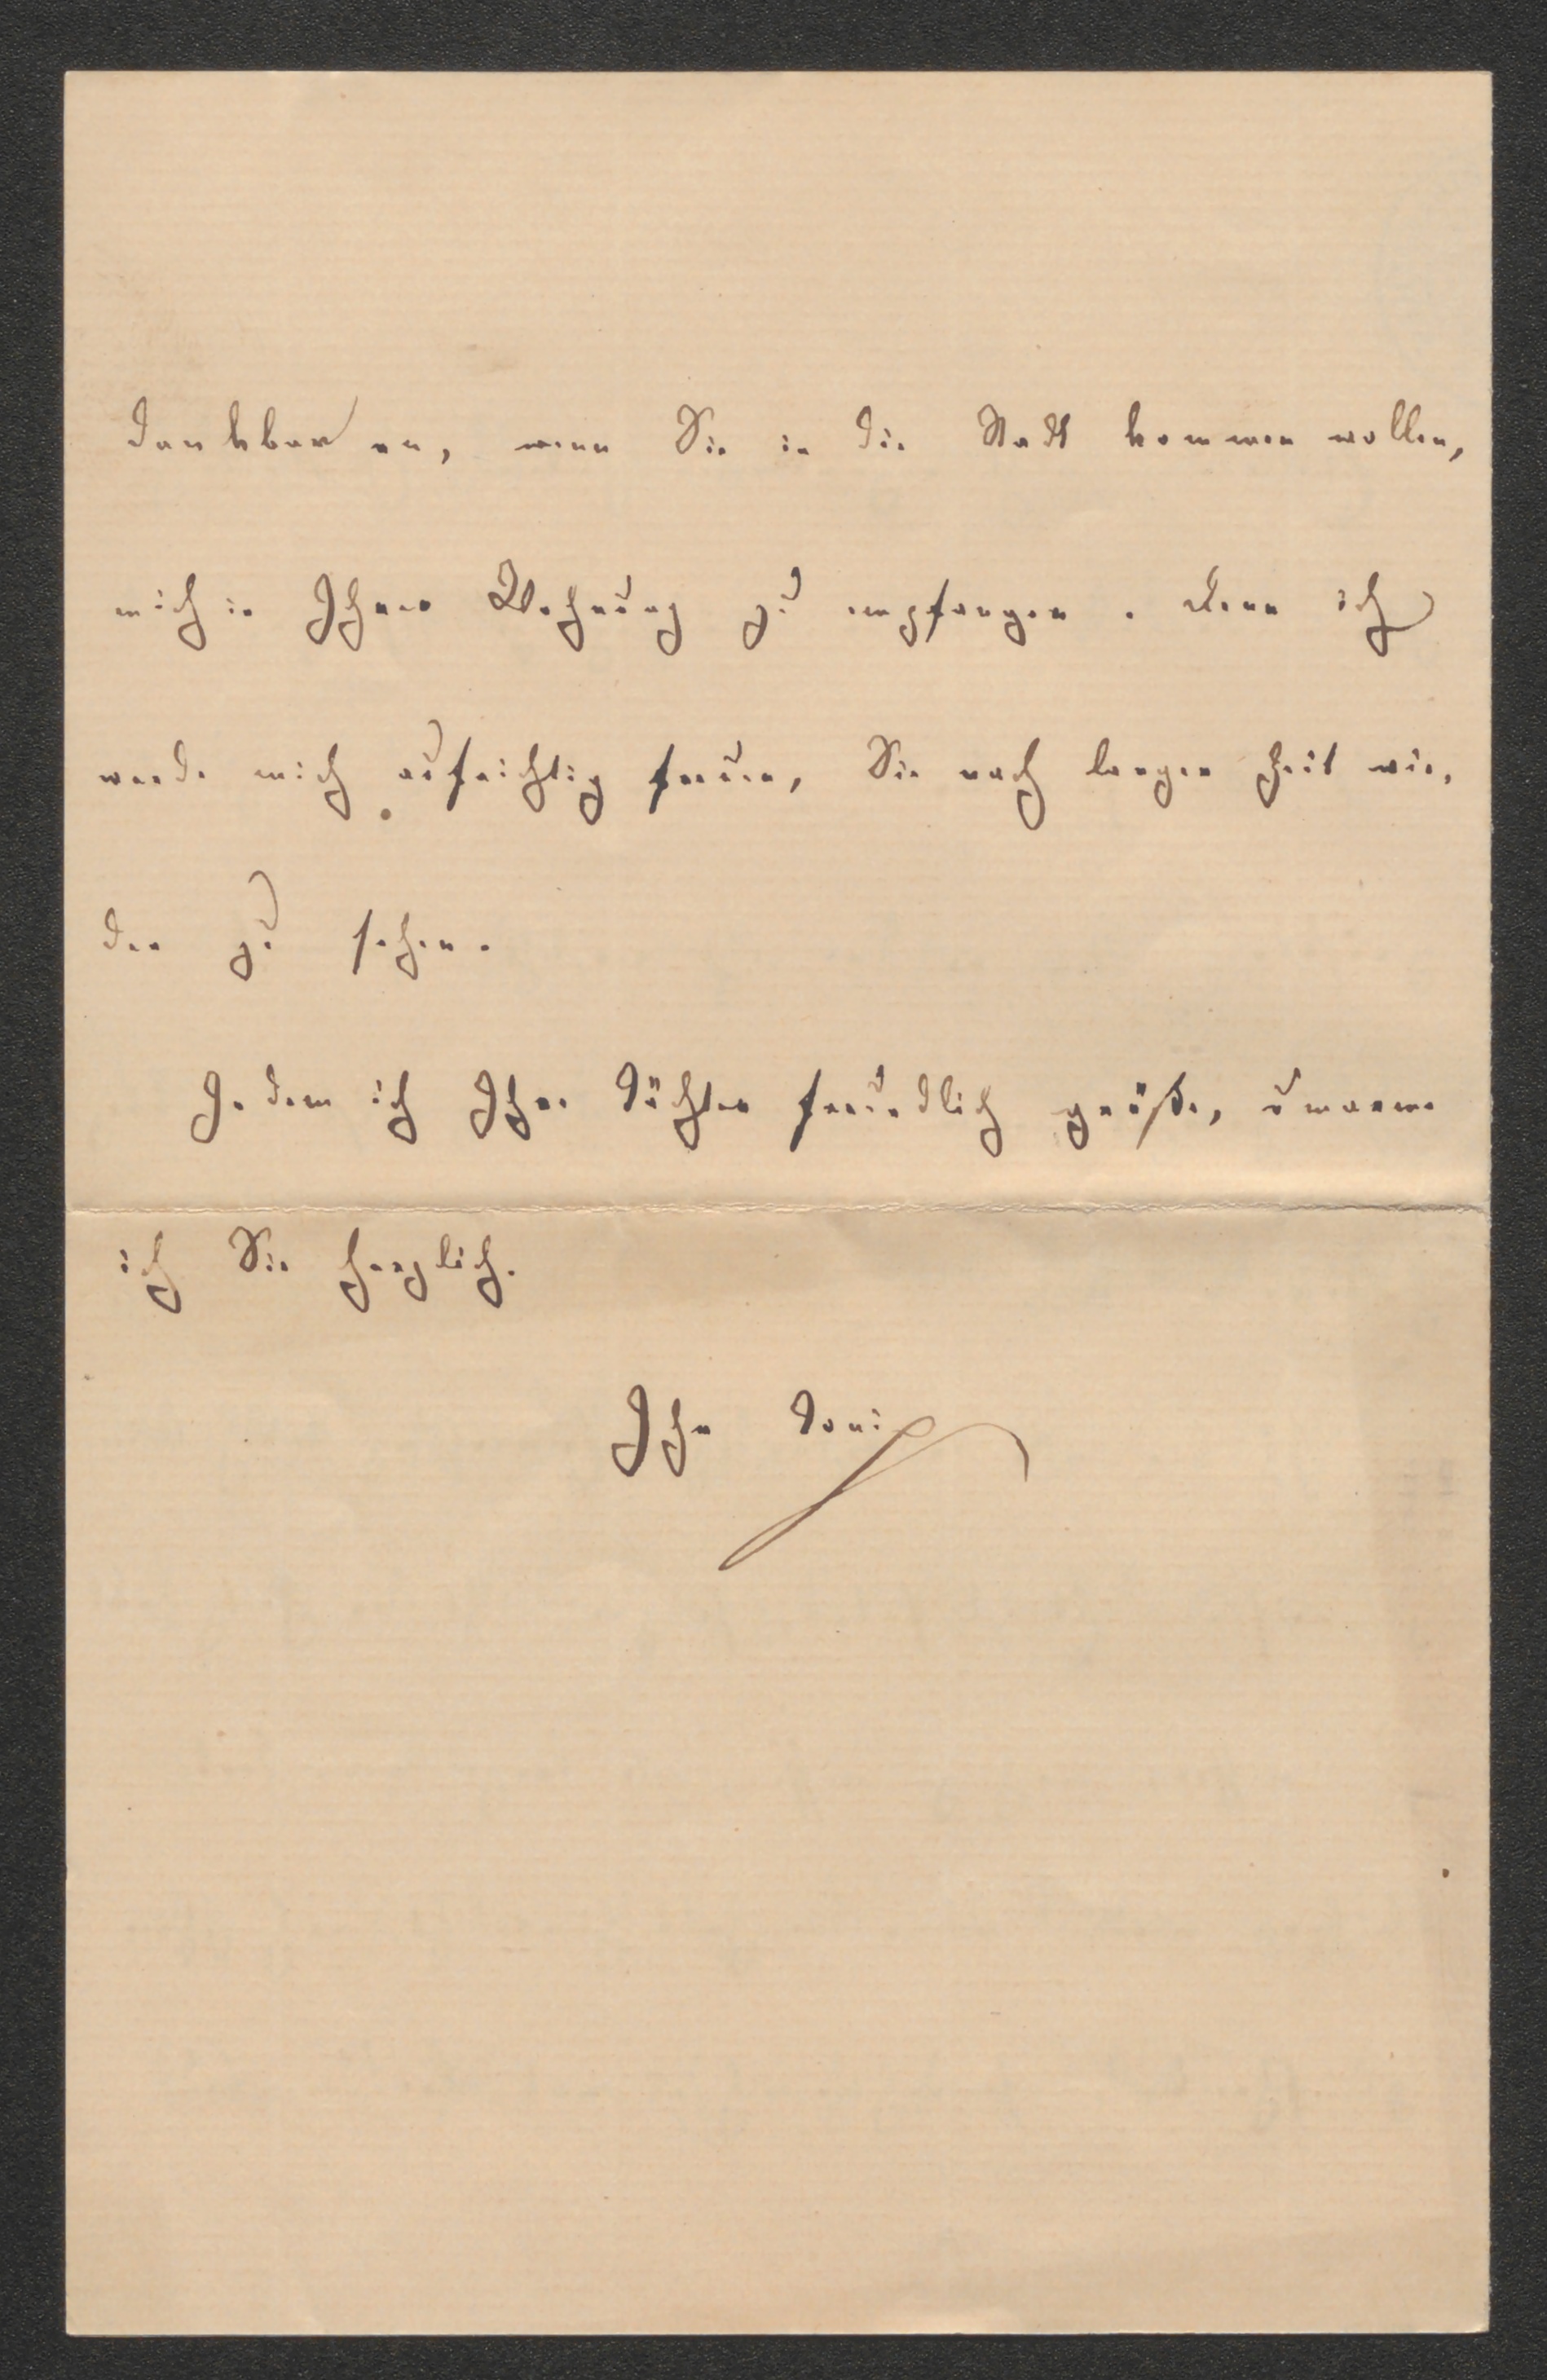 dankbar an, wenn Sie in die Stadt kommen wollen,
mich in Ihrer Wohnung zu empfangen. Denn ich
werde mich aufrichtig freuen, Sie nach langer Zeit wie,
der zu sehen.
Indem ich Ihre Töchter freundlich grüße, umarme
ich Sie herzlich.
Ihr Toni